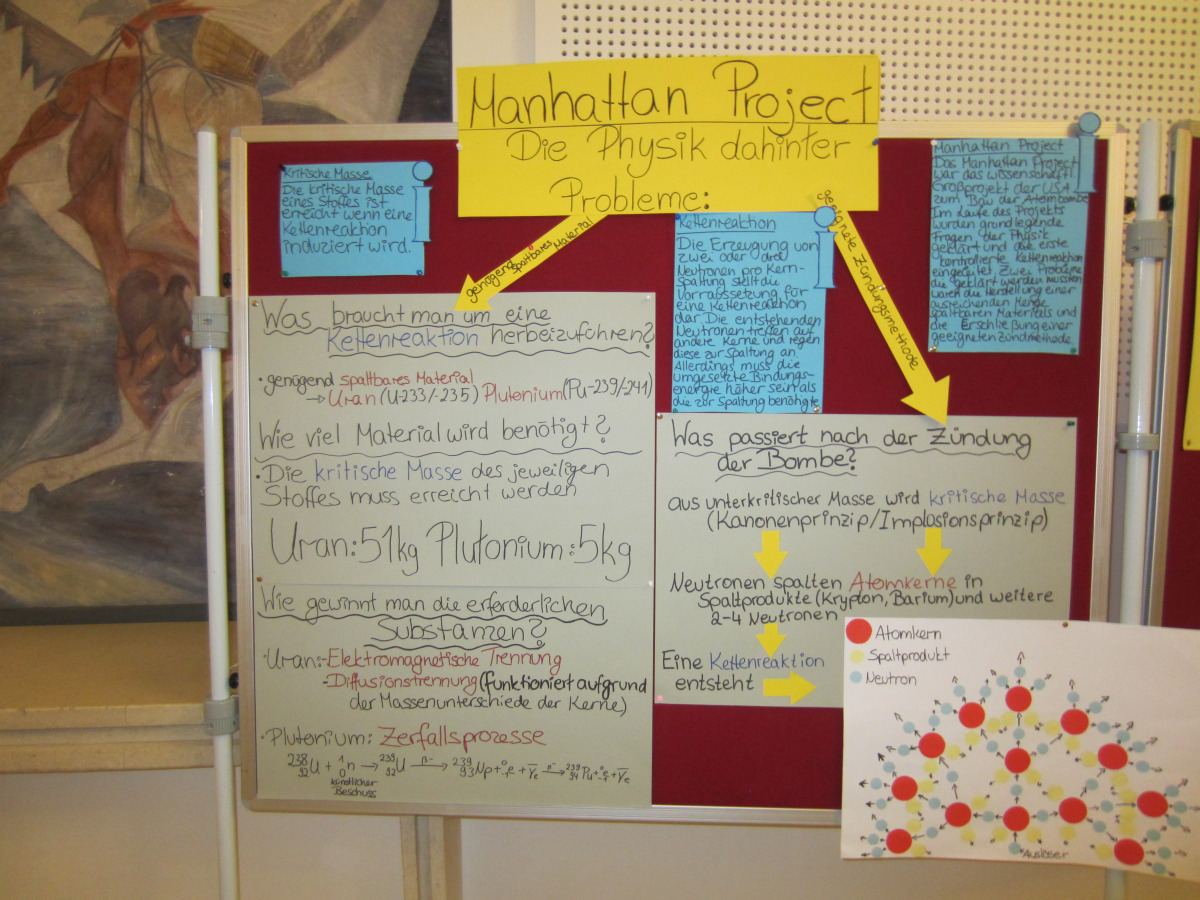 Manhattan Project
Die Physik dahinter
Probleme:
Kritische Masse
Die kritische Masse
eines Stoffes ist
erreicht wenn eine
Kettenreaktion
induziert wird.
genügend spaltbares Material
geeignete Zündungsmethode
Kettenreaktion
Die Erzeugung von
zwei oder drei
Neutronen pro Kern-
spaltung stellt die
Vorraussetzung für
eine Kettenreaktion
dar. Die entstehenden
Neutronen treffen auf
andere Kerne und regen
diese zur Spaltung an.
Allerdings muss die
umgesetzte Bindungs-
energie höher sein als
die zur Spaltung benöhgte
Manhattan Project
Das Manhattan Project
war das wissenschaftl.
Großprojekt der USA
zum Bau der Atombombe
Im Laufe des Projekts
wurden grundlegende
Fragen der Physik
geklärt und die erste
kontrollierte Kettenreaktion
eingeleitet. Zwei Probleme
die geklärt werden mussten
waren die Herstellung einer
ausreichenden Menge
spaltbaren Materials und
die Erschließung einer
geeigneten Zündmethode.
Was braucht man um eine
Kettenreaktion herbeizuführen?
· genügend spaltbares Material
→ Uran (U-233/-235) Plutonium (Pu-239/-241)
Wie viel Material wird benötigt?
· Die kritische Masse des jeweiligen
Stoffes muss erreicht werden
Uran: 51kg Plutonium: 5kg
Wie gewinnt man die erforderlichen
Substanzen?
· Uran: - Elektromagnetische Trennung
- Diffusionstrennung (funktioniert aufgrund
der Massenunterschiede der Kerne)
· Plutonium: Zerfallsprozesse
²³⁸₉₂U + ¹₀n → ²³⁹₉₂U β⁻→ ²³⁹₉₃Np + ⁰₋₁e + ν̅ₑ β⁻→ ²³⁹₉₄Pu + ⁰₋₁e + ν̅ₑ
künstlicher
Beschuss
Was passiert nach der Zündung
der Bombe?
aus unterkritischer Masse wird kritische Masse
(Kanonenprinzip/Implosionsprinzip)
Neutronen spalten Atomkerne in
Spaltprodukte (Krypton, Barium) und weitere
2-4 Neutronen
Eine Kettenreaktion
entsteht
Atomkern
Spaltprodukt
Neutron
Auslöser